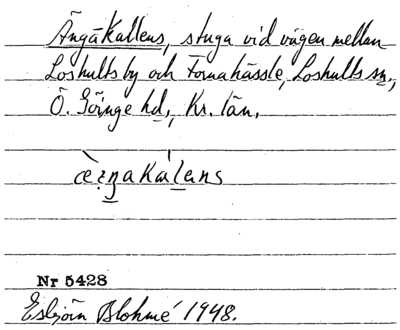 Ängakallens, stuga vid vägen mellan
Loshults by och Tornahässle, Loshults sn,
Ö. Göinge hd, Kr. län.
Nr 5428
Esbjörn Blohmé 1948.